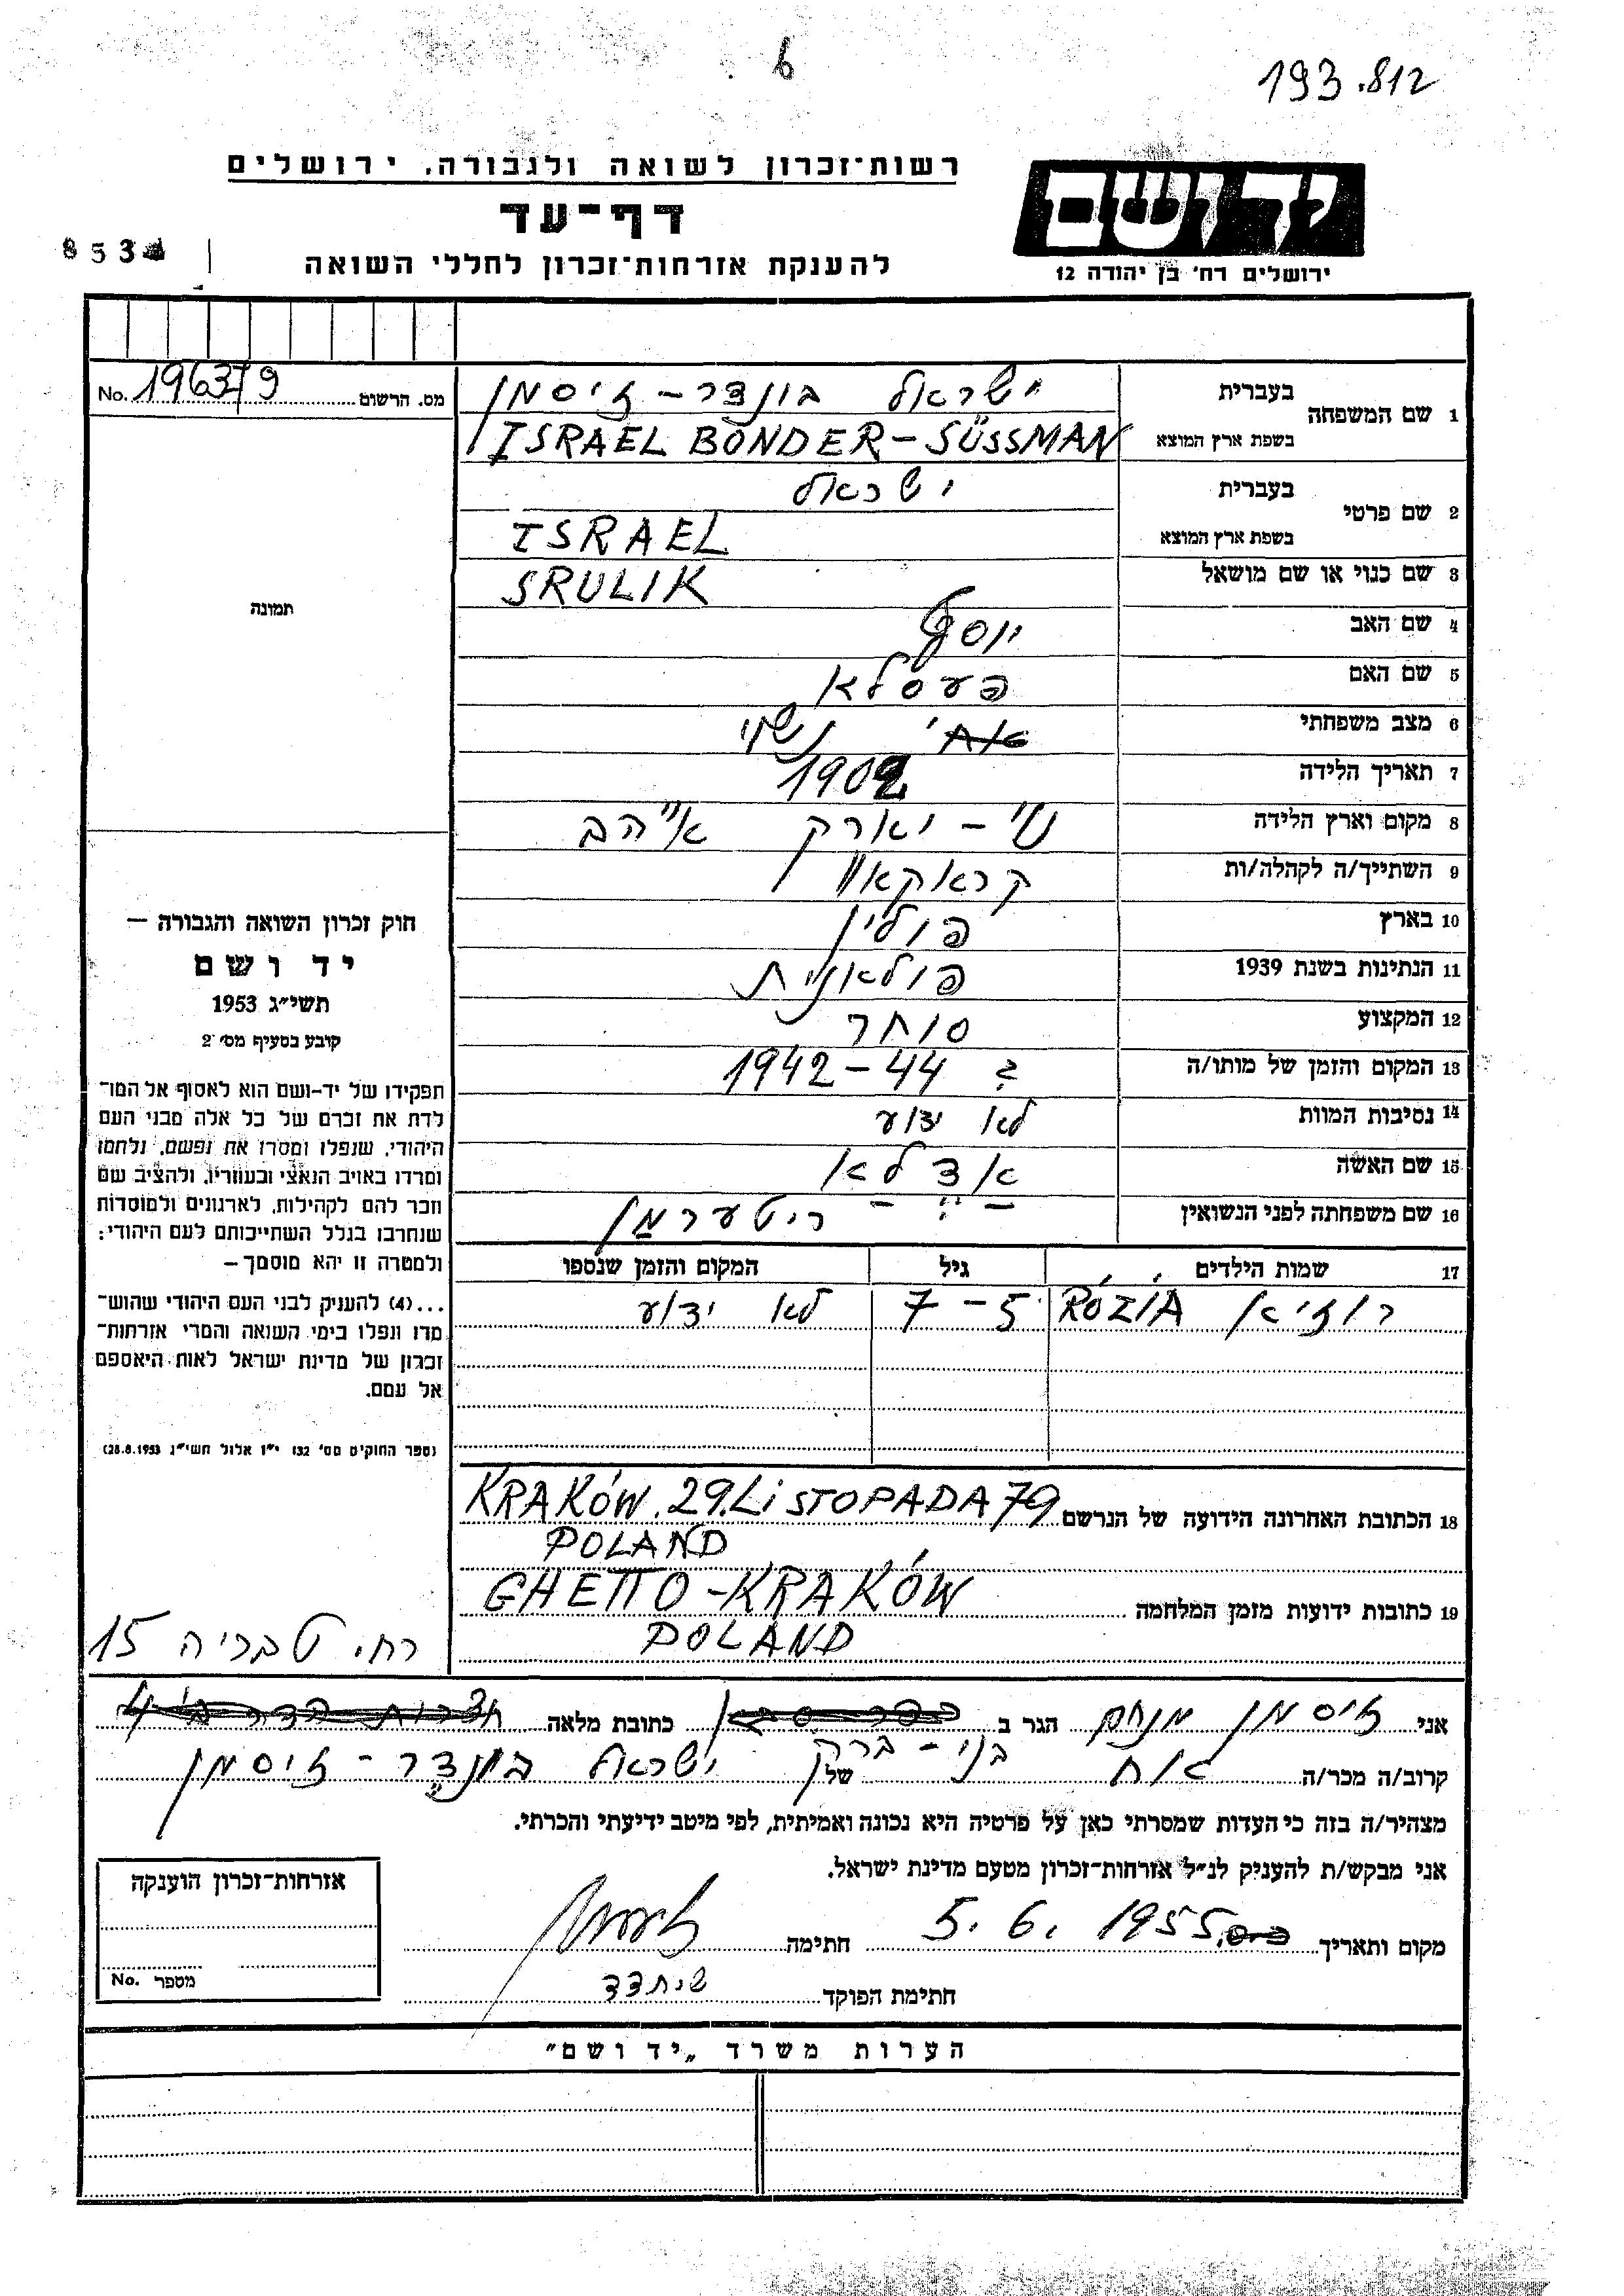 6
193.812
רשות־זכרון לשואה ולגבורה, ירושלים
יד ושם
דף־עד
ירושלים רח' בן יהודה 12
להענקת אזרחות־זכרון לחללי השואה
853
מס. הרשום 196379 No.
1 שם המשפחה
בעברית ישראל בונדר - זיסמן
בשפת ארץ המוצא ISRAEL BONDER - SÜSSMAN
2 שם פרטי
בעברית ישראל
בשפת ארץ המוצא ISRAEL
3 שם כנוי או שם מושאל SRULIK
4 שם האב יוסף
5 שם האם פעסלא
6 מצב משפחתי נשוי
7 תאריך הלידה 1902
8 מקום וארץ הלידה ניו - יארק ארהב
9 השתייך/ה לקהלה/ות קראקאוו
10 בארץ פולין
11 הנתינות בשנת 1939 פולאנית
12 המקצוע סוחר
13 המקום והזמן של מותו/ה ? 1942-44
14 נסיבות המוות לא ידוע
15 שם האשה אדלא
16 שם משפחתה לפני הנשואין - " - ריטערמן
17 שמות הילדים גיל המקום והזמן שנספו
רוזיא RÓZIA 5-7 לא ידוע
18 הכתובת האחרונה הידועה של הנרשם KRAKÓW. 29. LISTOPADA 79
POLAND
19 כתובות ידועות מזמן המלחמה GHETTO - KRAKÓW
POLAND
תמונה
חוק זכרון השואה והגבורה —
יד ושם
תשי״ג 1953
קובע בסעיף מס׳ 2
תפקידו של יד-ושם הוא לאסוף אל המו־
לדת את זכרם של כל אלה מבני העם
היהודי, שנפלו ומסרו את נפשם, נלחמו
ומרדו באויב הנאצי ובעוזריו, ולהציב שם
וזכר להם לקהילות, לארגונים ולמוסדות
שנחרבו בגלל השתייכותם לעם היהודי;
ולמטרה זו יהא מוסמך —
...(4) להעניק לבני העם היהודי שהוש־
מדו ונפלו בימי השואה והמרי אזרחות־
זכרון של מדינת ישראל לאות היאספם
אל עמם.
(ספר החוקים מס׳ 132 י״ז אלול תשי״ג 28.8.1953)
רח. טבריה 15
אני זיסמן מנחם הגר ב כתובת מלאה
בני - ברק
קרוב/ה מכר/ה אח של ישראל בונדר - זיסמן
מצהיר/ה בזה כי העדות שמסרתי כאן על פרטיה היא נכונה ואמיתית, לפי מיטב ידיעתי והכרתי.
אני מבקש/ת להעניק לנ״ל אזרחות־זכרון מטעם מדינת ישראל.
מקום ותאריך 5. 6. 1955 חתימה
חתימת הפוקד
אזרחות־זכרון הוענקה
מספר No.
הערות משרד „יד ושם״